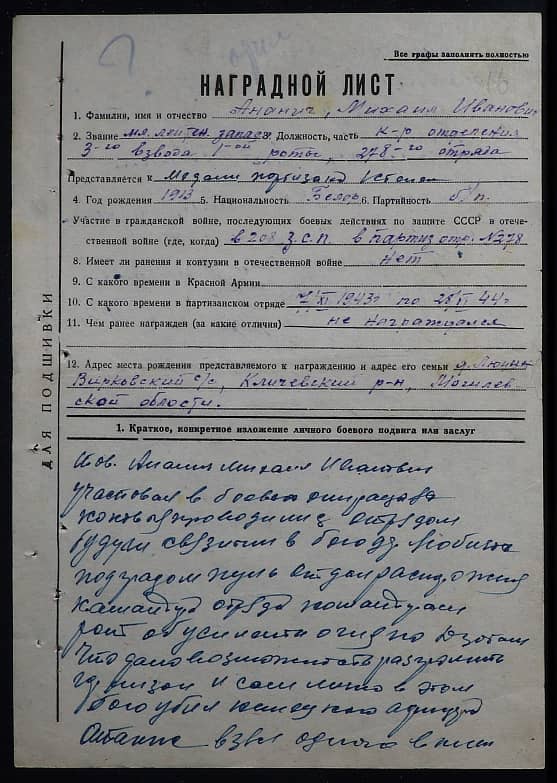 Все графы заполнять полностью
НАГРАДНОЙ ЛИСТ
1. Фамилия, имя и отчество Ананич, Михаил Иванович
2. Звание мл. лейтен. запаса 3. Должность, часть к-р отделения
3-го взвода 1-ой роты, 278-го отряда
Представляется к Медали партизана I степен
4. Год рождения 1913 5. Национальность Белор 6. Партийность б/п.
Участие в гражданской войне, последующих боевых действиях по защите СССР в отече-
ственной войне (где, когда) в 208 з.с.п. в партиз отр. № 278
8. Имеет ли ранения и контузии в отечественной войне нет
9. С какого времени в Красной Армии
10. С какого времени в партизанском отряде 7/XI 1943 г по 28/VI 44 г
11. Чем ранее награжден (за какие отличия) не награждался
12. Адрес места рождения представляемого к награждению и адрес его семьи д.
Вирковский с/с, Кличевский р-н, Могилев-
ской области.
ДЛЯ ПОДШИВКИ
1. Краткое, конкретное изложение личного боевого подвига или заслуг
тов. Ананич Михаил Иванович
участвовал в боевых операциях
которые проводились отрядом
будучи связным в бою д.
под градом пуль отдал
командира отряда командирам
рот об усилении огня по Дзотам
что дало возможность разгромить
гарнизон и сам лично в этом
бою убил
взял одного в плен